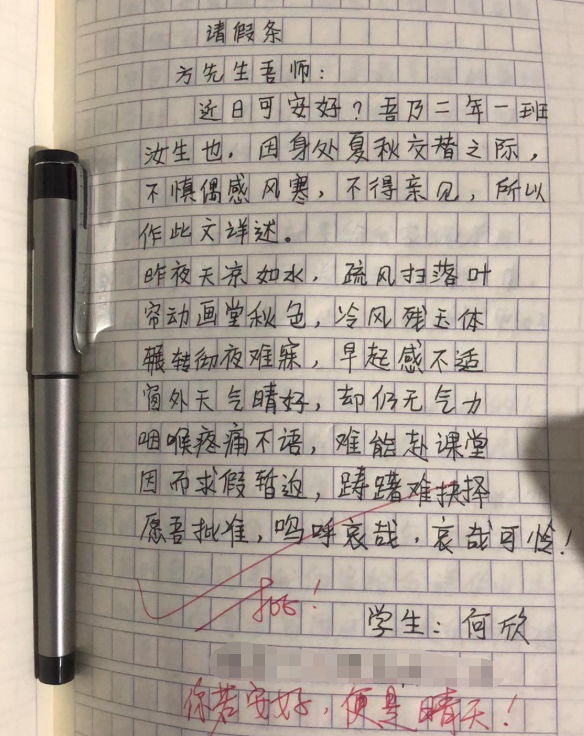 请假条
方先生吾师：
近日可安好？吾乃二年一班
汝生也，因身处夏秋交替之际，
不慎偶感风寒，不得亲见，所以
作此文详述。
昨夜天凉如水，疏风扫落叶
帘动画堂秋色，冷风残玉体
辗转彻夜难寐，早起感不适
窗外天气晴好，却仍无气力
咽喉疼痛不语，难能赴课堂
因而求假暂返，踌躇难抉择
愿吾批准，呜呼哀哉，哀哉可怜！
批！
学生：何欣
你若安好，便是晴天！